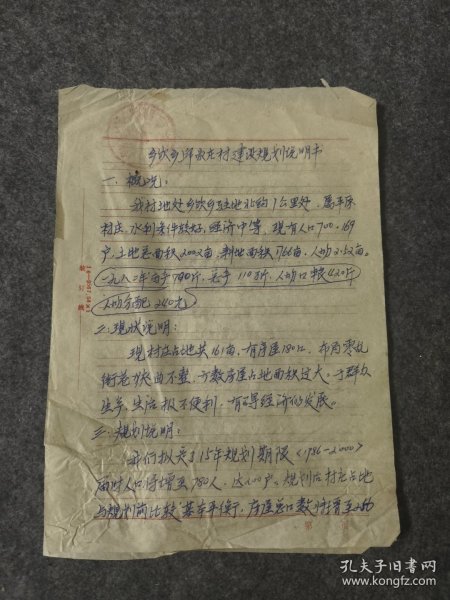 乡饮乡 家庄村建设规划说明书
一、概况：
我村地处乡饮乡驻地北约1公里处，属平原
村庄，水利条件较好，经济中等，现有人口700，169
户，土地总面积2002亩，耕地面积1766亩，人均2.52亩。
一九八二年亩产780斤，总产110万斤，人均口粮420斤
人均分配240元
二、现状说明：
现村庄占地共161亩，有房屋180口，布局零乱
街巷 曲不整，少数房屋占地面积过大。于群众
生产、生活极不便利，有碍经济的发展。
三、规划说明：
我们拟定了15年规划期限（1986-2000）
届时人口将增至780人，达200户。规划后村庄占地
与规划前比较基本平衡，房屋总口数将增至266
装订线
第
孔夫子旧书网
www.kongfz.com